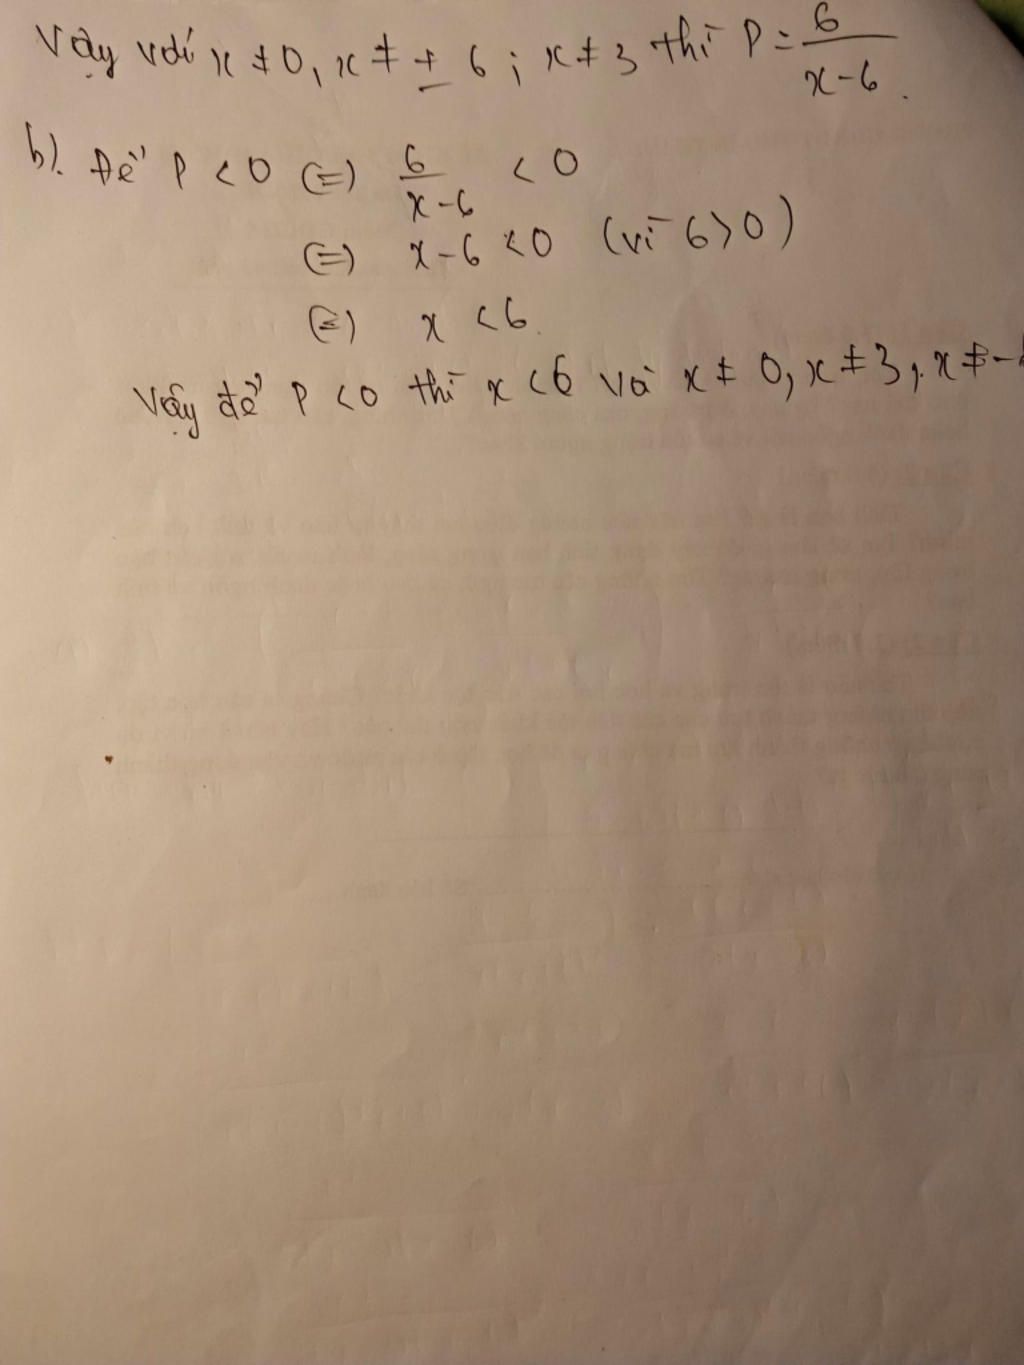 Vậy với x ≠ 0, x ≠ ± 6 ; x ≠ 3 thì P = 6/(x-6).
b). Để P < 0 (=) 6/(x-6) < 0
(=) x-6 < 0 (vì 6 > 0)
(=) x < 6.
Vậy để P < 0 thì x < 6 và x ≠ 0, x ≠ 3, x ≠ -